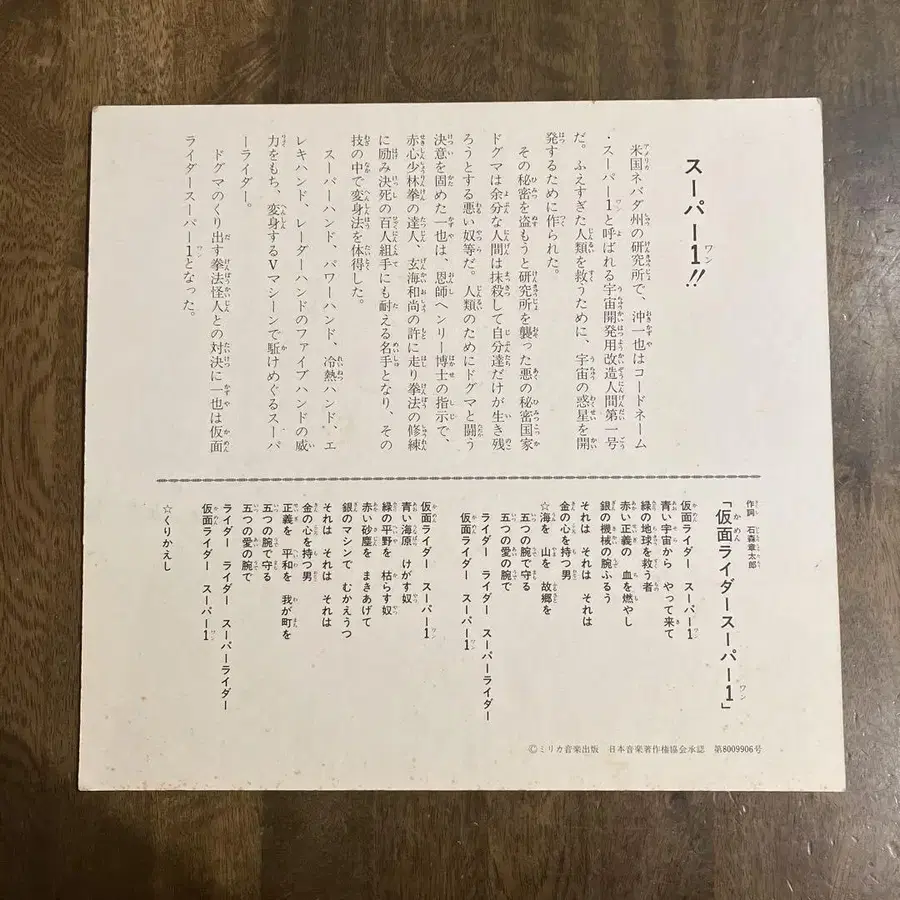 スーパー1!!
米国ネバダ州の研究所で、沖一也はコードネーム
・スーパー1と呼ばれる宇宙開発用改造人間第一号
だ。ふえすぎた人類を救うために、宇宙の惑星を開
発するために作られた。
その秘密を盗もうと研究所を襲った悪の秘密国家
ドグマは余分な人間は抹殺して自分達だけが生き残
ろうとする悪い奴等だ。人類のためにドグマと闘う
決意を固めた一也は、恩師ヘンリー博士の指示で、
赤心少林拳の達人、玄海和尚の許に走り拳法の修練
に励み決死の百人組手にも耐える名手となり、その
技の中で変身法を体得した。
スーパーハンド、パワーハンド、冷熱ハンド、エ
レキハンド、レーダーハンドのファイブハンドの威
力をもち、変身するVマシーンで駈けめぐるスーパ
ーライダー。
ドグマのくり出す拳法怪人との対決に一也は仮面
ライダースーパー1となった。
「仮面ライダースーパー1」
作詞 石森章太郎
仮面ライダー スーパー1
青い宇宙から やって来て
緑の地球を救う者
赤い正義の 血を燃やし
銀の機械の腕ふるう
それは それは それは
金の心を持つ男
☆海を 山を 故郷を
五つの腕で守る
五つの愛の腕で
ライダー ライダー スーパーライダー
仮面ライダー スーパー1
仮面ライダー スーパー1
青い海原 けがす奴
緑の平野を 枯らす奴
赤い砂塵を まきあげて
銀のマシンで むかえうつ
それは それは それは
金の心を持つ男
正義を 平和を 我が町を
五つの腕で守る
五つの愛の腕で
ライダー ライダー スーパーライダー
仮面ライダー スーパー1
☆くりかえし
©ミリカ音楽出版 日本音楽著作権協会承認 第8009906号